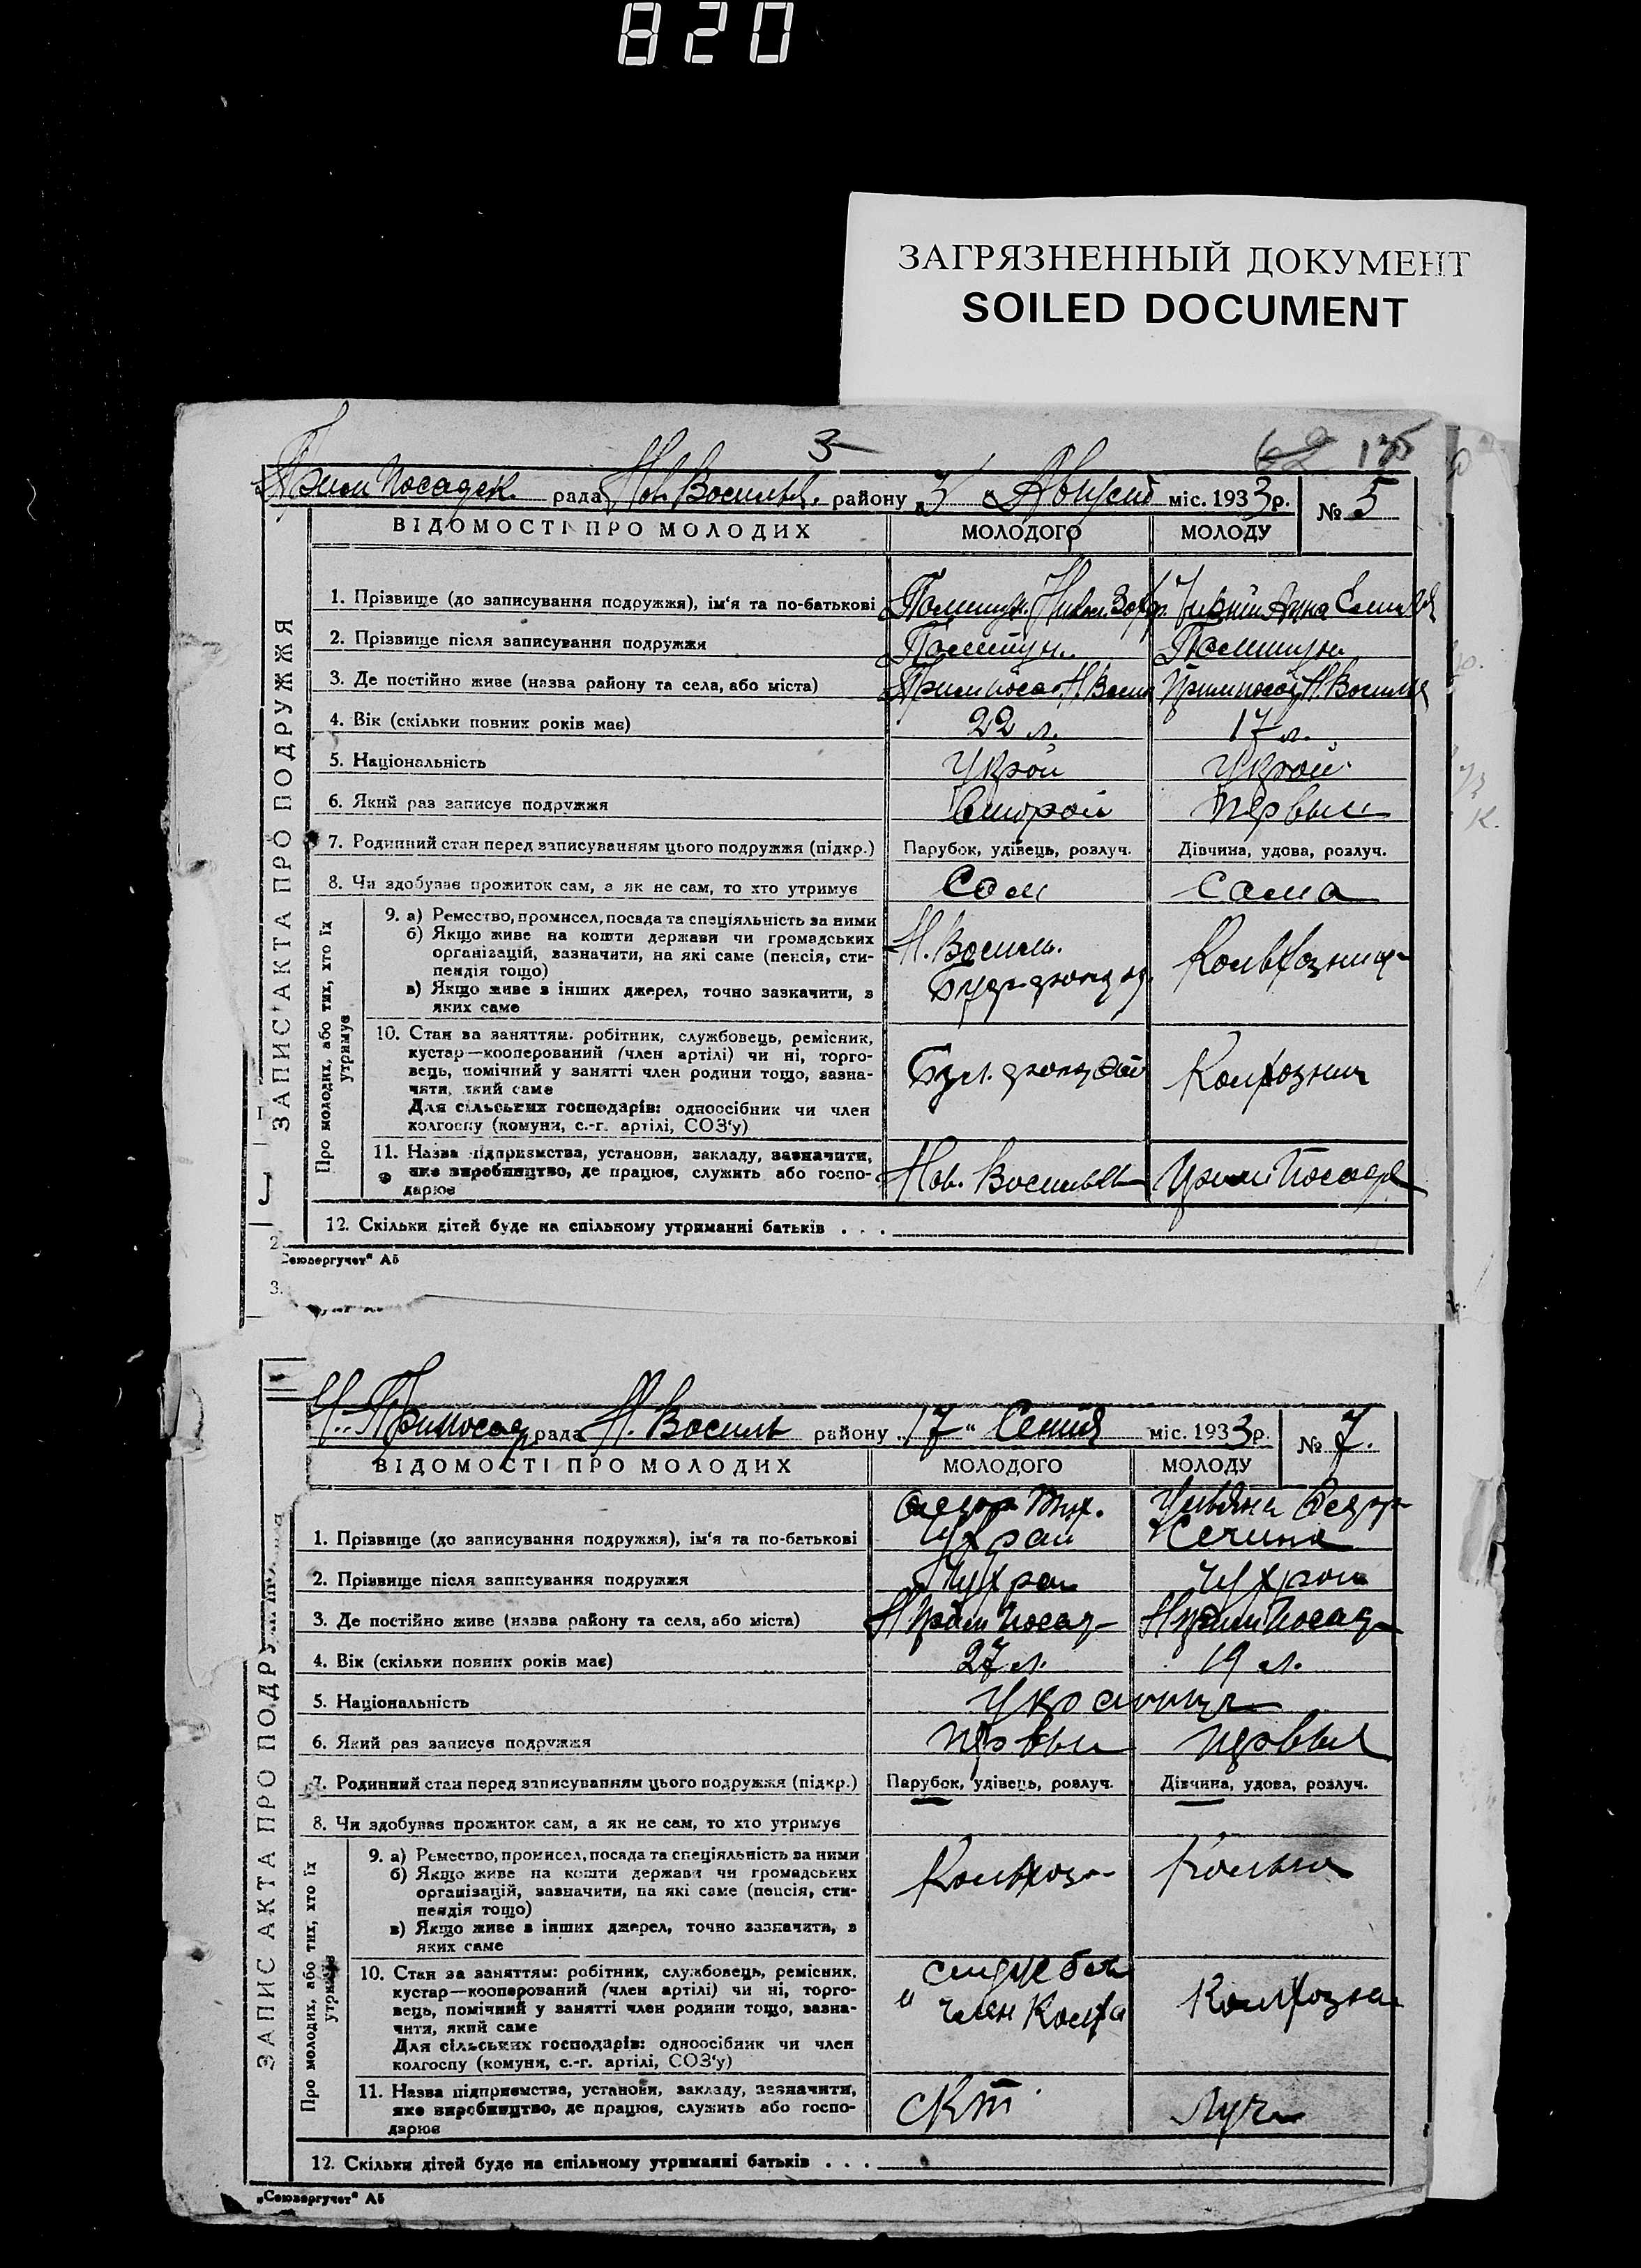 820
ЗАГРЯЗНЕННЫЙ ДОКУМЕНТ
SOILED DOCUMENT
3
62 175
Прим Посадск. рада Нов. Восильев. району „3“ Август міс. 1933р. № 5
ЗАПИС АКТА ПРО ПОДРУЖЖЯ
ВІДОМОСТІ ПРО МОЛОДИХ МОЛОДОГО МОЛОДУ
1. Прізвище (до записування подружжя), ім'я та по-батькові Анна
2. Прізвище після записування подружжя
3. Де постійно живе (назва району та села, або міста) Примпосад Н Восил Примпосад Н. Восильев
4. Вік (скільки повних років має) 22 л. 17 л.
5. Національність Украй Украй
6. Який раз записує подружжя Второй Первый
7. Родинний стан перед записуванням цього подружжя (підкр.) Парубок, удівець, розлуч. Дівчина, удова, розлуч.
8. Чи здобуває прожиток сам, а як не сам, то хто утримує Сам Сама
Про молодих, або тих, хто їх утримує
9. а) Ремество, промисел, посада та спеціяльність за ними
б) Якщо живе на кошти держави чи громадських
організацій, зазначити, на які саме (пенсія, сти-
пендія тощо)
в) Якщо живе з інших джерел, точно зазначити, з
яких саме
Н. Восиль.
10. Стан за заняттям: робітник, службовець, ремісник,
кустар—кооперований (член артілі) чи ні, торго-
вець, помічний у занятті член родини тощо, зазна-
чити, який саме
Для сільських господарів: одноосібник чи член
колгоспу (комуни, с.-г. артілі, СОЗ'у)
11. Назва підприємства, установи, закладу, зазначити,
яке виробництво, де працює, служить або госпо-
дарює
Нов. Восильев Прим Посад
12. Скільки дітей буде на спільному утриманні батьків . . .
„Союзоргучет“ А5
Н. Примпосад рада Н. Восиль району „17“ Сентяб міс. 1933р. № 7.
ЗАПИС АКТА ПРО ПОДРУЖЖЯ
ВІДОМОСТІ ПРО МОЛОДИХ МОЛОДОГО МОЛОДУ
Федор Тих. Ульяна Федор
1. Прізвище (до записування подружжя), ім'я та по-батькові Чухрай
2. Прізвище після записування подружжя Чухрай Чухрай
3. Де постійно живе (назва району та села, або міста) Н Прим Посад Н Прим Посад
4. Вік (скільки повних років має) 27 л. 19 л.
5. Національність Украинцы
6. Який раз записує подружжя Первый Первый
7. Родинний стан перед записуванням цього подружжя (підкр.) Парубок, удівець, розлуч. Дівчина, удова, розлуч.
8. Чи здобуває прожиток сам, а як не сам, то хто утримує
Про молодих, або тих, хто їх утримує
9. а) Ремество, промисел, посада та спеціяльність за ними
б) Якщо живе на кошти держави чи громадських
організацій, зазначити, на які саме (пенсія, сти-
пендія тощо)
в) Якщо живе з інших джерел, точно зазначити, з
яких саме
10. Стан за заняттям: робітник, службовець, ремісник,
кустар—кооперований (член артілі) чи ні, торго-
вець, помічний у занятті член родини тощо, зазна-
чити, який саме
Для сільських господарів: одноосібник чи член
колгоспу (комуни, с.-г. артілі, СОЗ'у)
член
11. Назва підприємства, установи, закладу, зазначити,
яке виробництво, де працює, служить або госпо-
дарює
Луч
12. Скільки дітей буде на спільному утриманні батьків . . .
„Союзоргучет“ А5